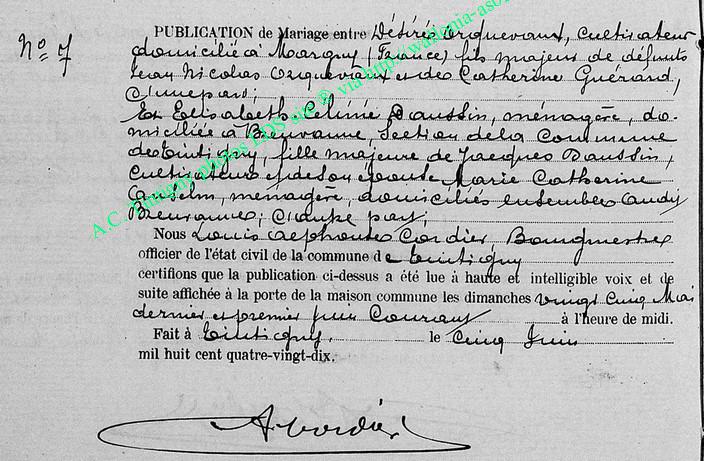 Nº 7
PUBLICATION de Mariage entre Désiré Orquevaux, cultivateur
domicilié à Margny (France) fils majeur de défunts
Jean Nicolas Orquevaux et de Catherine Guérard,
d'une part;
Et Elisabeth Céline Daussin, ménagère, do-
miciliée à Breuvanne, Section de la Commune
de Tintigny, fille majeure de Jacques Daussin,
cultivateur et de son épouse Marie Catherine
ménagère, domiciliés ensemble audit
Breuvanne; d'autre part;
Nous Louis Alphonse Cordier, Bourgmestre
officier de l'état civil de la commune de Tintigny
certifions que la publication ci-dessus a été lue à haute et intelligible voix et de
suite affichée à la porte de la maison commune les dimanches vingt cinq Mai
dernier et premier juin Courant à l'heure de midi.
Fait à Tintigny. le Cinq Juin
mil huit cent quatre-vingt-dix.
A Cordier
A.C. Tintigny photos LDS site ® via http://wallonia-asbl